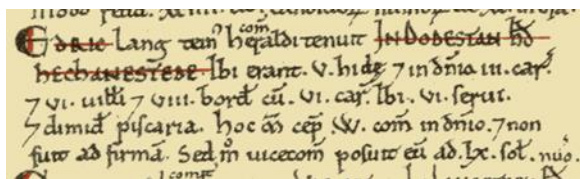 EDRIC Lang tein' heraldi com̃ tenuit IN DODESTAN HD̃
HECHANESTEDE Ibi eranт. v. hidę ⁊ in dñio. iii. car̃.
⁊ vi. uilłi ⁊ viii. bord̃ cũ. vi. car̃. Ibi. vi. serui.
⁊ dimid̃ piscaria. hoc m̃ cep̃ .W. com̃ in dñio. ⁊ non
fuit ad firmã. Sed m̊ uicecom̃ posuit eũ ad. lx. sol̃. nũo.